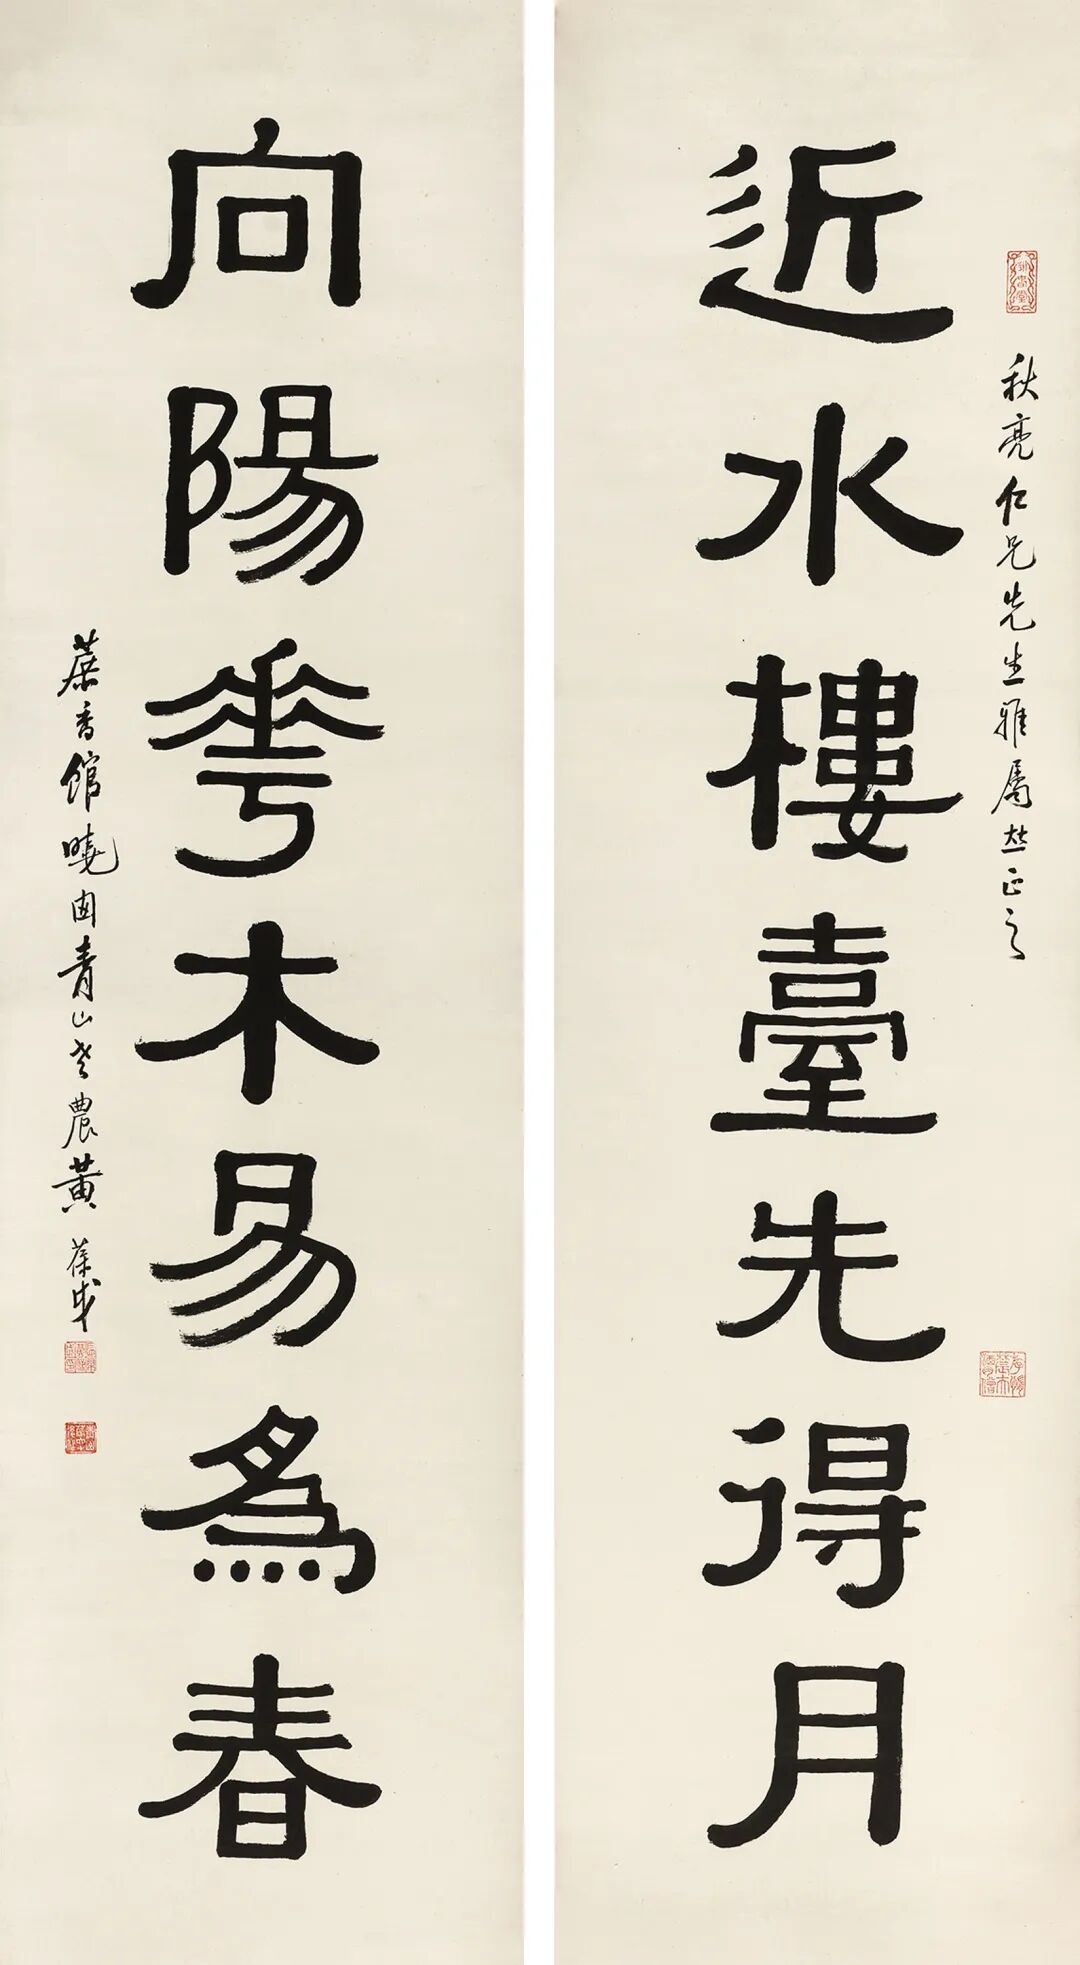 近水樓臺先得月
秋亮仁兄先生雅屬並正之
向陽花木易為春
蔗香館曉囱青山老農黃葆戉